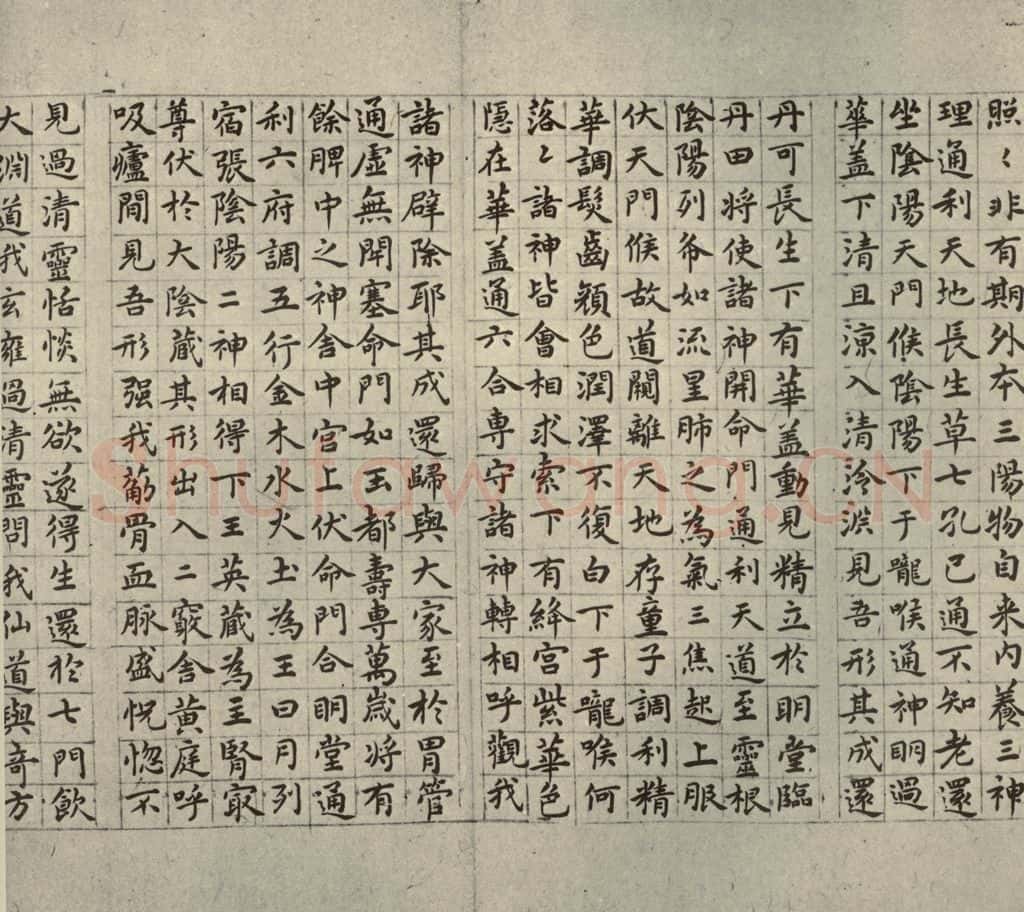 照〻非有期外本三陽物自来内養三神
理通利天地長生草七孔已通不知老還
坐陰陽天門候陰陽下于嚨喉通神明過
華盖下清且涼入清泠淵見吾形其成還
丹可長生下有華盖動見精立於明堂臨
丹田将使諸神開命門通利天道至靈根
陰陽列布如流星肺之為氣三焦起上服
伏天門候故道闚離天地存童子調利精
華調髮齒顏色潤澤不復白下于嚨喉何
落〻諸神皆會相求索下有絳宫紫華色
隱在華盖通六合専守諸神轉相呼觀我
諸神辟除耶其成還歸與大家至於胃管
通虛無閉塞命門如玉都壽専萬歲将有
餘脾中之神舍中宫上伏命門合明堂通
利六府調五行金木水火土為王日月列
宿張陰陽二神相得下玉英藏為主腎寂
尊伏於大陰藏其形出入二竅舍黄庭呼
吸廬間見吾形强我筋骨血脉盛怳惚不
見過清靈恬惔無欲遂得生還於七門飲
大淵道我玄雍過清靈問我仙道與竒方
Shufawang.CN